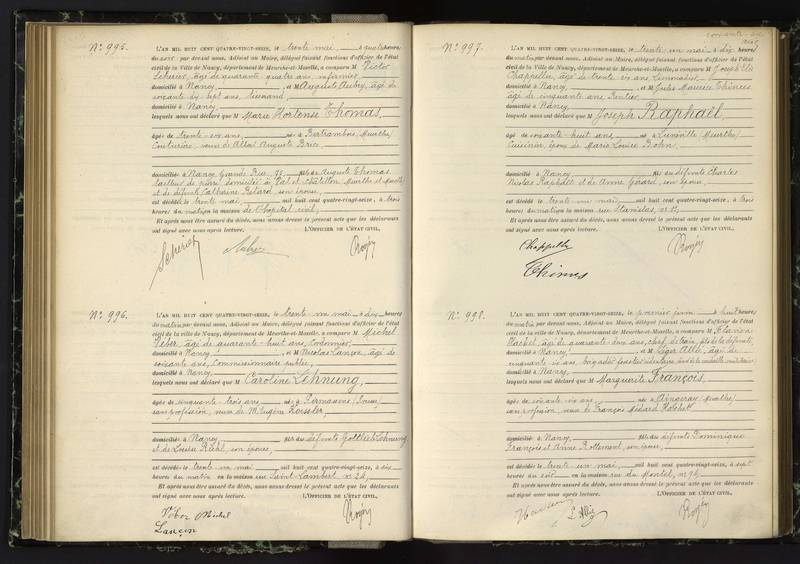 N° 995.
L'AN MIL HUIT CENT QUATRE-VINGT-SEIZE, le trente mai à quatre heures
du soir par devant nous, Adjoint au Maire, délégué faisant fonctions d'officier de l'état
civil de la Ville de Nancy, département de Meurthe-et-Moselle, a comparu M Victor
âgé de quarante quatre ans, infirmier
domicilié à Nancy, et M Auguste Aubry, âgé de
soixante dix-sept ans,
domicilié à Nancy
lesquels nous ont déclaré que M Marie Hortense Thomas,
âgée de trente-six ans, née à Bertrambois, (Meurthe)
couturière, veuve de Albert Auguste
domiciliée à Nancy, Grande Rue, fille de Auguste Thomas,
tailleur de pierre, domicilié à Val et Châtillon, Meurthe et Moselle
et de défunte Catherine son épouse,
est décédée le trente mai, mil huit cent quatre-vingt-seize, à trois
heures du matin en la maison de l'hôpital civil,
Et après nous être assuré du décès, nous avons dressé le présent acte que les déclarants
ont signé avec nous après lecture. L'OFFICIER DE L'ÉTAT CIVIL,
N° 996.
L'AN MIL HUIT CENT QUATRE-VINGT-SEIZE, le trente-un mai à dix heures
du matin par devant nous, Adjoint au Maire, délégué faisant fonctions d'officier de l'état
civil de la ville de Nancy, département de Meurthe-et-Moselle, a comparu M Michel
Véber, âgé de quarante-huit ans, cordonnier,
domicilié à Nancy, et M Nicolas Lançon, âgé de
soixante ans, commissionnaire public,
domicilié à Nancy,
lesquels nous ont déclaré que M Caroline Lehnung,
âgée de cinquante-trois ans, née à Pirmasens,
sans profession, veuve de M. Eugène
domiciliée à Nancy fille des défunts Gottlieb Lehnung
et de Louise son épouse,
est décédée le trente un mai mil huit cent quatre-vingt-seize, à dix
heures du matin en la maison rue Saint-Lambert n° 24,
Et après nous être assuré du décès, nous avons dressé le présent acte que les déclarants
ont signé avec nous après lecture. L'OFFICIER DE L'ÉTAT CIVIL,
Véber Michel
Lançon
N° 997.
L'AN MIL HUIT CENT QUATRE-VINGT-SEIZE, le trente un mai à dix heures
du matin par devant nous, Adjoint au Maire, délégué faisant fonctions d'officier de l'état
civil de la Ville de Nancy, département de Meurthe-et-Moselle, a comparu M Joseph
Chappellu, âgé de trente six ans, limonadier,
domicilié à Nancy, et M Jules Maurice Thinus
âgé de cinquante ans, rentier,
domicilié à Nancy,
lesquels nous ont déclaré que M Joseph Raphaël,
âgé de soixante-huit ans, né à Lunéville (Meurthe)
cuisinier, époux de Marie Louise Bohn,
domicilié à Nancy fils des défunts Charles
Nicolas Raphaël et de Anne Gérard, son épouse,
est décédé le trente un mai, mil huit cent quatre-vingt-seize, à trois
heures du matin, en la maison rue Stanislas, n°
Et après nous être assuré du décès, nous avons dressé le présent acte que les déclarants
ont signé avec nous après lecture. L'OFFICIER DE L'ÉTAT CIVIL,
Chappellu
Thinus
N° 998.
L'AN MIL HUIT CENT QUATRE-VINGT-SEIZE, le premier juin à huit heures
du matin par devant nous, Adjoint au Maire, délégué faisant fonctions d'officier de l'état
civil de la ville de Nancy, département de Meurthe-et-Moselle, a comparu M
âgé de quarante deux ans, chef de train, fils de la défunte,
domicilié à Nancy, et M Léger Allié, âgé de
cinquante six ans, brigadier forestier
domicilié à Nancy,
lesquels nous ont déclaré que M Marguerite François,
âgée de soixante-six ans, née à Aingeray (Meurthe)
sans profession, veuve de François Médard
domiciliée à Nancy, fille des défunts Dominique
François et Anne son épouse,
est décédée le trente un mai, mil huit cent quatre-vingt-seize, à sept
heures du soir en la maison rue du Montet, n°
Et après nous être assuré du décès, nous avons dressé le présent acte que les déclarants
ont signé avec nous après lecture. L'OFFICIER DE L'ÉTAT CIVIL,